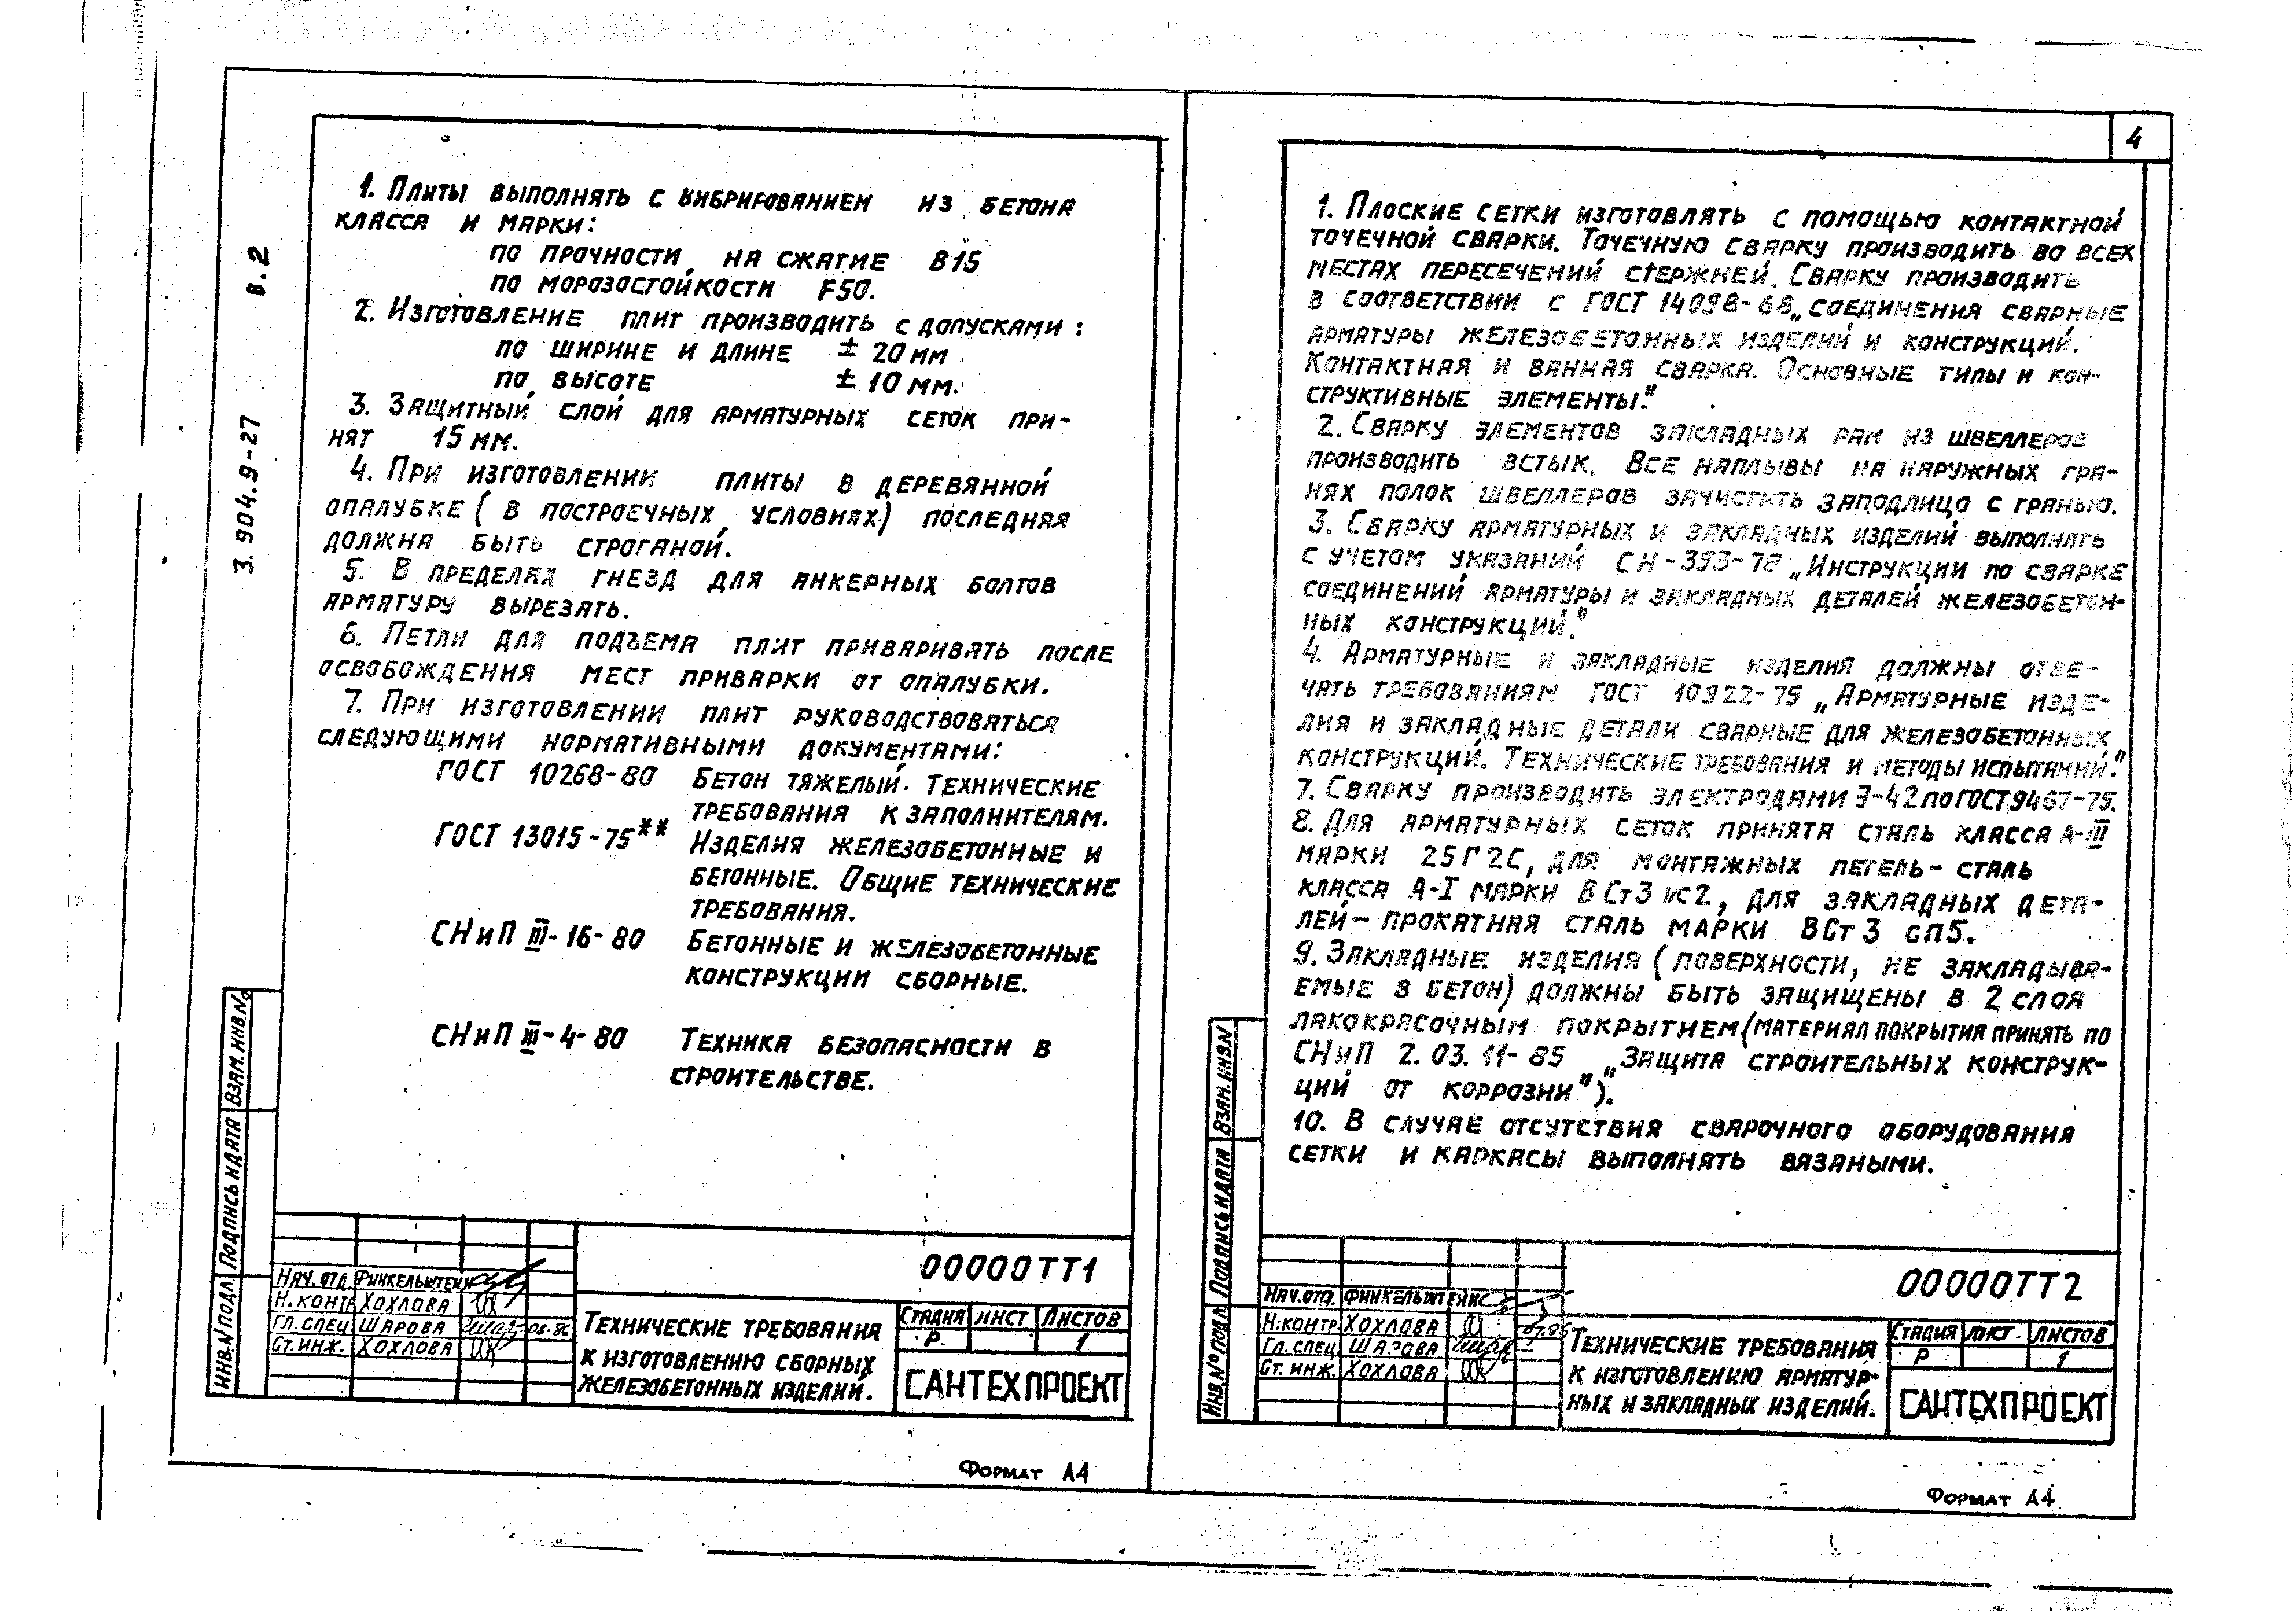 4
3.904.9-27 в.2
1. Плиты выполнять с вибрированием из бетона
класса и марки:
по прочности на сжатие В15
по морозостойкости F50.
2. Изготовление плит производить с допусками:
по ширине и длине ± 20 мм
по высоте ± 10 мм.
3. Защитный слой для арматурных сеток при-
нят 15 мм.
4. При изготовлении плиты в деревянной
опалубке ( в построечных условиях) последняя
должна быть строганой.
5. В пределах гнезд для анкерных болтов
арматуру вырезать.
6. Петли для подъема плит приваривать после
освобождения мест приварки от опалубки.
7. При изготовлении плит руководствоваться
следующими нормативными документами:
ГОСТ 10268-80 Бетон тяжелый. Технические
требования к заполнителям.
ГОСТ 13015-75** Изделия железобетонные и
бетонные. Общие технические
требования.
СНиП III-16-80 Бетонные и железобетонные
конструкции сборные.
СНиП III-4-80 Техника безопасности в
строительстве.
Взам. инв. №
Подпись и дата
Инв. № подл.
00000ТТ1
Нач. отд. Финкельштейн
Н. контр Хохлова
Гл. спец Шарова 08.86
Ст. инж. Хохлова
Технические требования
к изготовлению сборных
железобетонных изделий.
Стадия Лист Листов
Р 1
САНТЕХПРОЕКТ
Формат А4
1. Плоские сетки изготовлять с помощью контактной
точечной сварки. Точечную сварку производить во всех
местах пересечений стержней. Сварку производить
в соответствии с ГОСТ 14098-68 „Соединения сварные
арматуры железобетонных изделий и конструкций.
Контактная и ванная сварка. Основные типы и кон-
структивные элементы."
2. Сварку элементов закладных рам из швеллеров
производить встык. Все наплывы на наружных гра-
нях полок швеллеров зачистить заподлицо с гранью.
3. Сварку арматурных и закладных изделий выполнять
с учетом указаний СН-393-78 „Инструкции по сварке
соединений арматуры и закладных деталей железобетон-
ных конструкций."
4. Арматурные и закладные изделия должны отве-
чать требованиям ГОСТ 10922-75 „Арматурные изде-
лия и закладные детали сварные для железобетонных
конструкций. Технические требования и методы испытаний."
7. Сварку производить электродами Э-42 по ГОСТ 9467-75.
8. Для арматурных сеток принята сталь класса А-III
марки 25Г2С, для монтажных петель - сталь
класса А-I марки ВСт3 пс2, для закладных дета-
лей - прокатная сталь марки ВСт3 сп5.
9. Закладные изделия (поверхности, не закладыва-
емые в бетон) должны быть защищены в 2 слоя
лакокрасочным покрытием (материал покрытия принять по
СНиП 2.03.11-85 „Защита строительных конструк-
ций от коррозии").
10. В случае отсутствия сварочного оборудования
сетки и каркасы выполнять вязаными.
Взам. инв. №
Подпись и дата
Инв. № подл.
00000ТТ2
Нач. отд. Финкельштейн
Н. контр. Хохлова
Гл. спец. Шарова
Ст. инж. Хохлова
Технические требования
к изготовлению арматур-
ных и закладных изделий.
Стадия Лист Листов
Р 1
САНТЕХПРОЕКТ
Формат А4